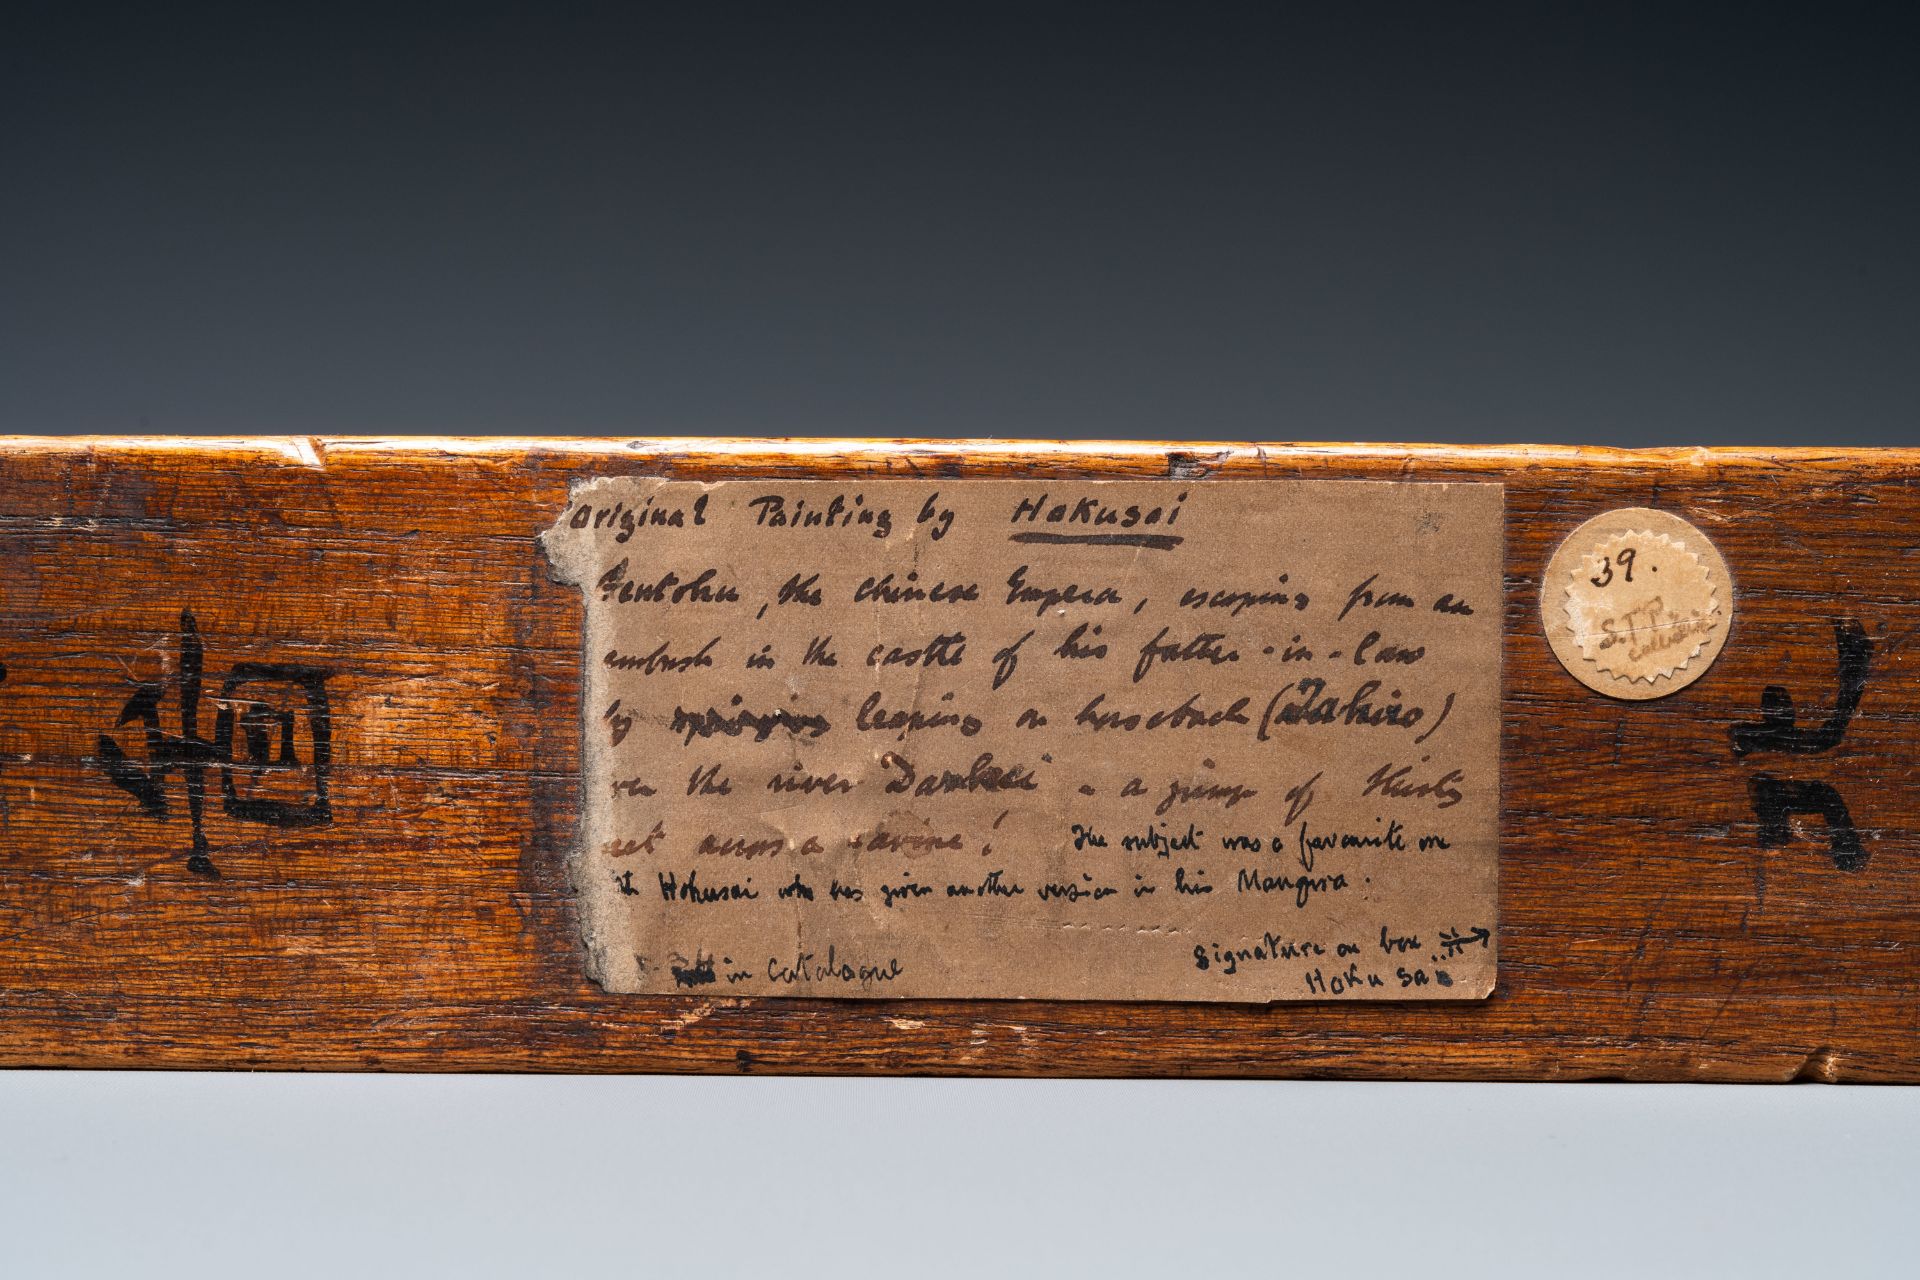 Original Painting by Hokusai
Gentoku, the Chinese Emperor, escaping from an
ambush in the castle of his father-in-law
by leaping on horseback (Takiro)
over the river Dankei - a jump of thirty
feet across a ravine! The subject was a favourite one
with Hokusai who has given another version in his Mangwa.
in Catalogue
Signature on box
Hokusai
39.
S.T.
Collection
画
北